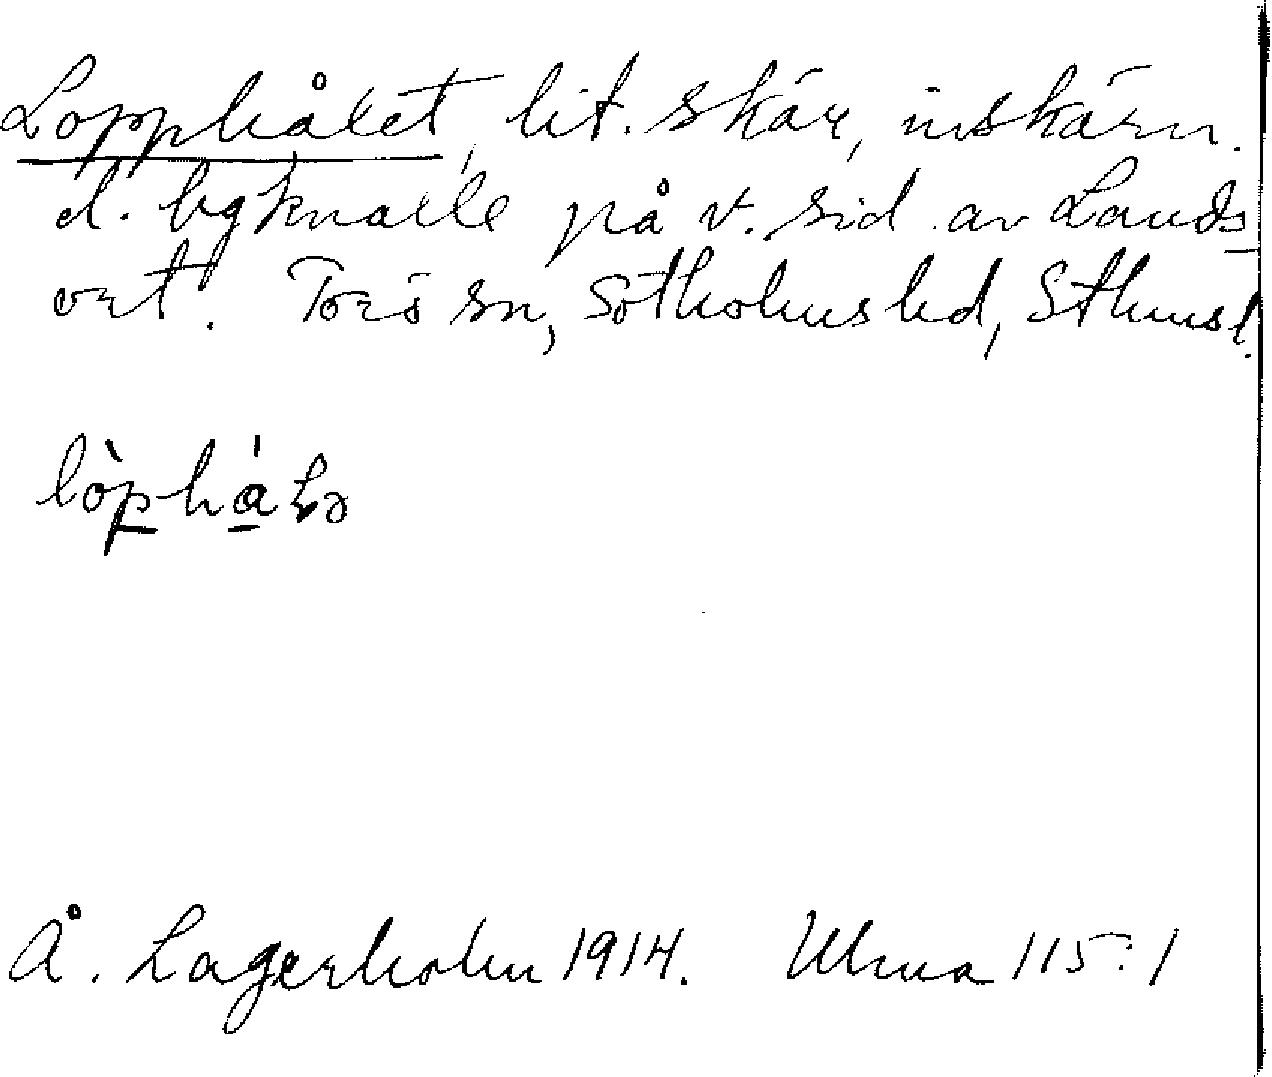 Lopphålet, lit. skär, inskärn.
el. bgknalle på v. sid av Lands-
ort. Torö sn, Sotholms hd, Sthmsl.
lòphá̱ɫə
Å. Lagerholm 1914. Ulma 115:1